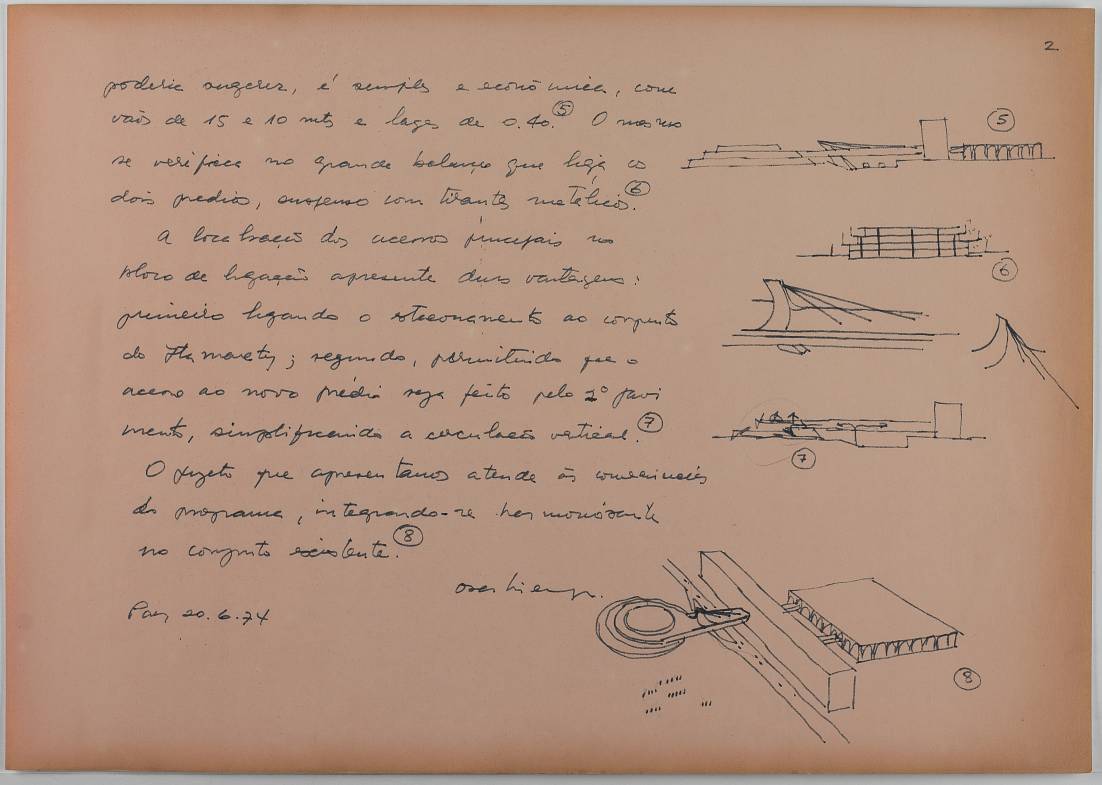 2
poderia sugerir, é simples e econômica, com
vãos de 15 e 10 mts e lages de 0.40. ⑤ O mesmo
se verifica no grande balanço que liga os
dois predios, suspenso com tirantes metálicos. ⑥
A localização dos acessos principais no
bloco de ligação apresenta duas vantagens:
primeiro ligando o estacionamento ao conjunto
do Itamaraty; segundo, permitindo que o
acesso ao novo prédio seja feito pelo 2º pavi
mento, simplificando a circulação vertical. ⑦
O projeto que apresentamos atende às conveniencias
do programa, integrando-se harmoniosamente
no conjunto existente. ⑧
20.6.74
⑤
⑥
⑦
⑧